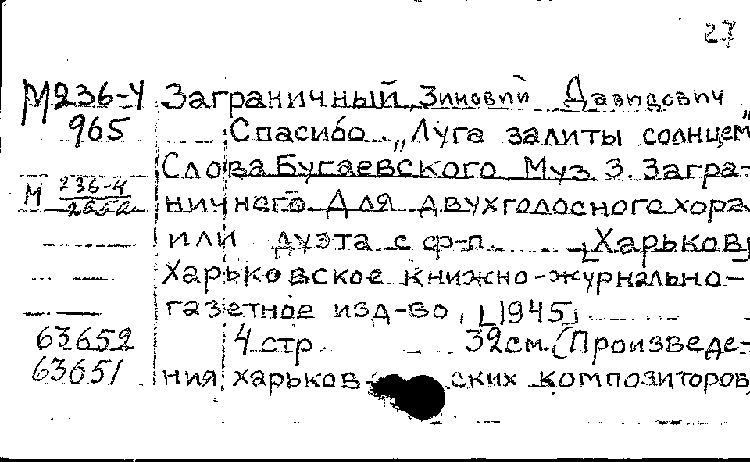 27
М236-4 Заграничный Зиновий Давидович
965 Спасибо. „Луга залиты солнцем"
Слова Бугаевского Муз З. Загра-
М 236-4 ничнего. Для двухголосного хора
или дуэта с ф-п. [Харьков]
Харьковское книжно-журнально-
газетное изд-во, [1945]
63652 4 стр 32см. (Произведе-
63651 ния харьковских композиторов